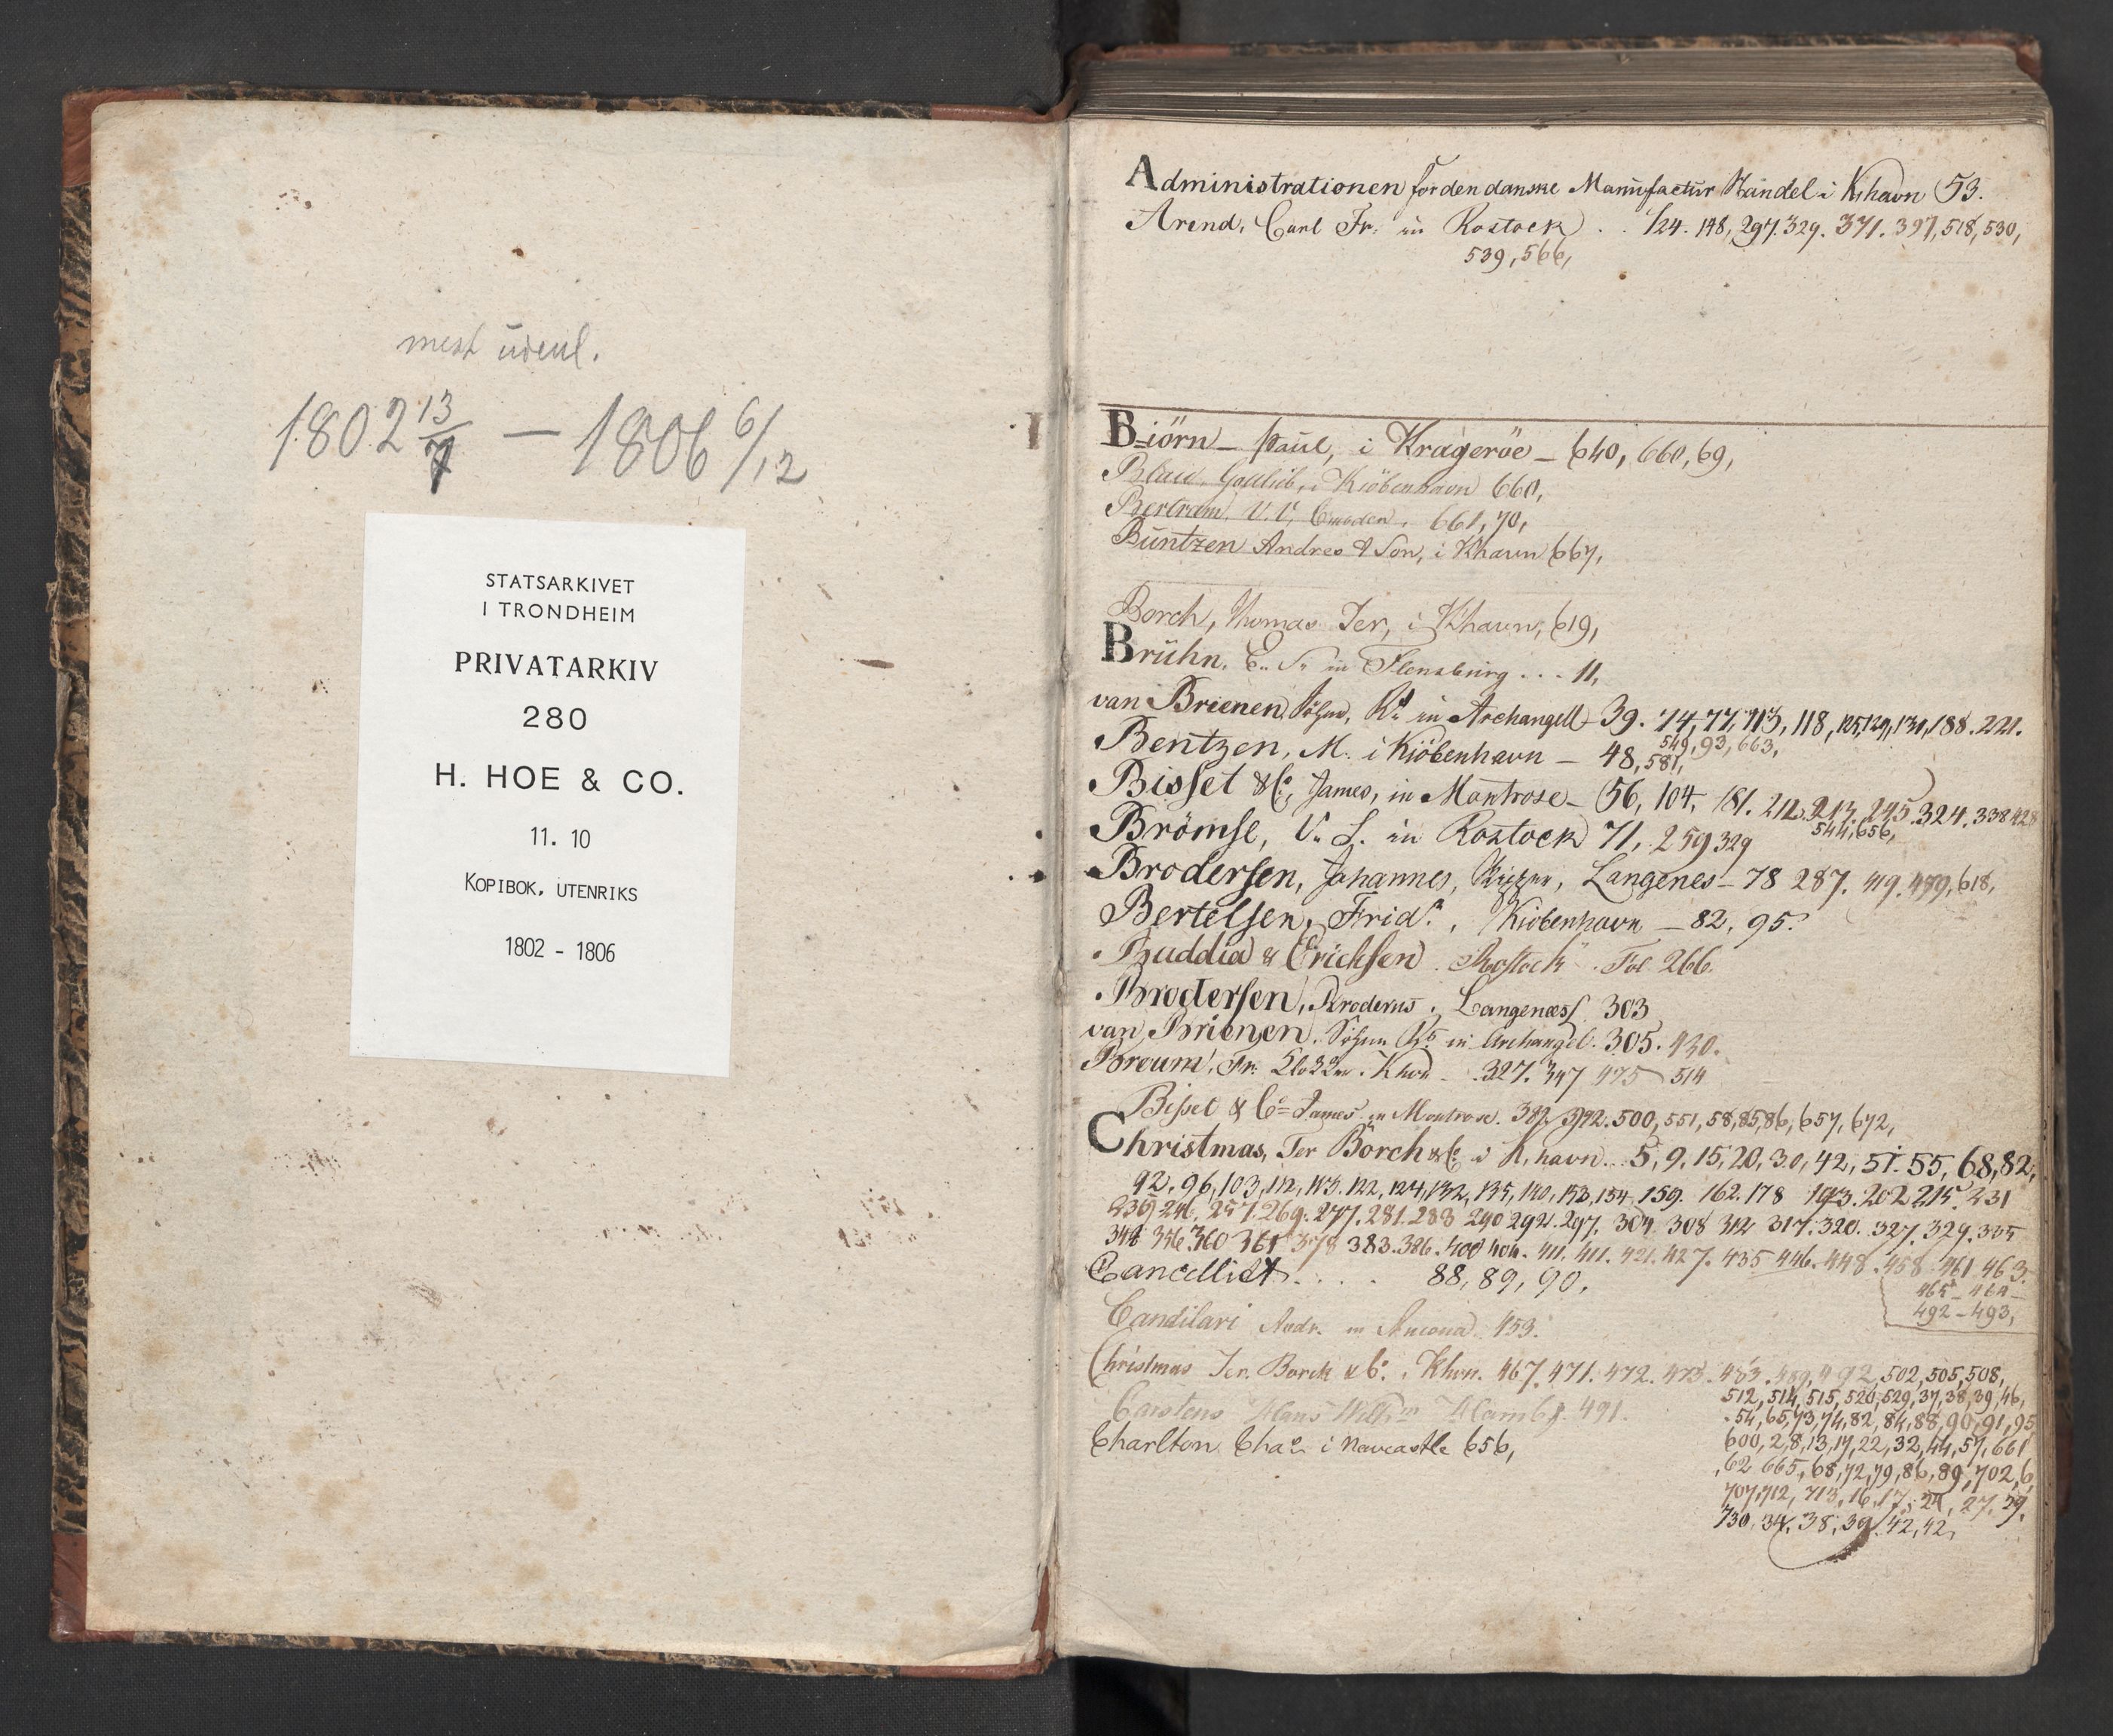 mest udenl.
1802 13/7 — 1806 6/12
STATSARKIVET
I TRONDHEIM
PRIVATARKIV
280
H. HOE & CO.
11. 10
KOPIBOK, UTENRIKS
1802 - 1806
Administrationen for den danske Manufactur Handel i K.havn 53.
Arend, Carl Fr. in Rostock . . 124. 148, 297. 329. 371. 397, 518, 530,
539, 566,
Biörn - Paul, i Kragerøe - 640, 660, 69,
Gottlieb, i Kiöbenhavn 660,
Bertram, V. V, Emden, 661, 70,
Büntzen Andreas & Son, i Khavn 667,
Borch, Thomas Ter, i Khavn, 619,
Brühn, E. S. in Flensburg . . . 11,
van Brienen Söhne, R. in Archangell - 39. 74, 77, 113, 118, 125, 129, 131, 188. 221.
549, 93, 663,
Bentzen, M. i Kiöbenhavn — 48, 581,
Bisset & Co, James, in Montrose - 56, 104, 181. 212. 213. 245. 324. 338 428
544, 656,
Brömse, V. S. in Rostock 71, 259 329
Brodersen, Johannes, Langenes - 78 287. 419. 479, 618,
Bertelsen, Frid., Kiöbenhavn — 82, 95.
Buddia & Erichsen. Rostock. Fol 266.
Brodersen, Broderus. Langenæss 303
van Brienen, Söhne in Archangel. 305. 430.
Breum, Fr. Khvn 327. 347 475 514
Bisset & Co James in Montrose. 382 392. 500, 551, 58, 85, 86, 657, 672,
Christmas, Ter Borch & Co i K.havn. 5, 9, 15, 20, 30, 42, 51. 55, 68, 82,
92, 96, 103, 112, 113. 122, 124, 132, 135, 140, 150, 154, 159. 162. 178 193. 202. 215. 231
239 246, 257. 269. 277. 281. 288 290 292. 297. 304 308 312 317. 320. 327. 329. 335
348 356 360 361 378 383. 386. 400 404. 411. 411. 421. 427. 435 446. 448. 458 461 463.
465 - 464 -
492 - 493,
Cancelliet . . . . 88, 89, 90.
Candilari Andr. in Ancona 453.
Christmas Ter Borch & Co. i Khvn. 467. 471. 472. 473. 483. 489, 492, 502, 505, 508,
512, 514, 515, 520, 529, 37, 38, 39, 46,
54, 65, 73, 74, 82, 84, 88, 90, 91, 95,
600, 2, 8, 13, 17, 22, 32, 44, 57, 661
62 665, 68, 72, 79, 86, 89, 702, 6
707, 712, 713, 16, 17, 24, 27, 29,
730, 34, 38, 39, 42, 42,
Carstens Hans Wilhm Hambg. 491.
Charlton Chas i Newcastle 656,